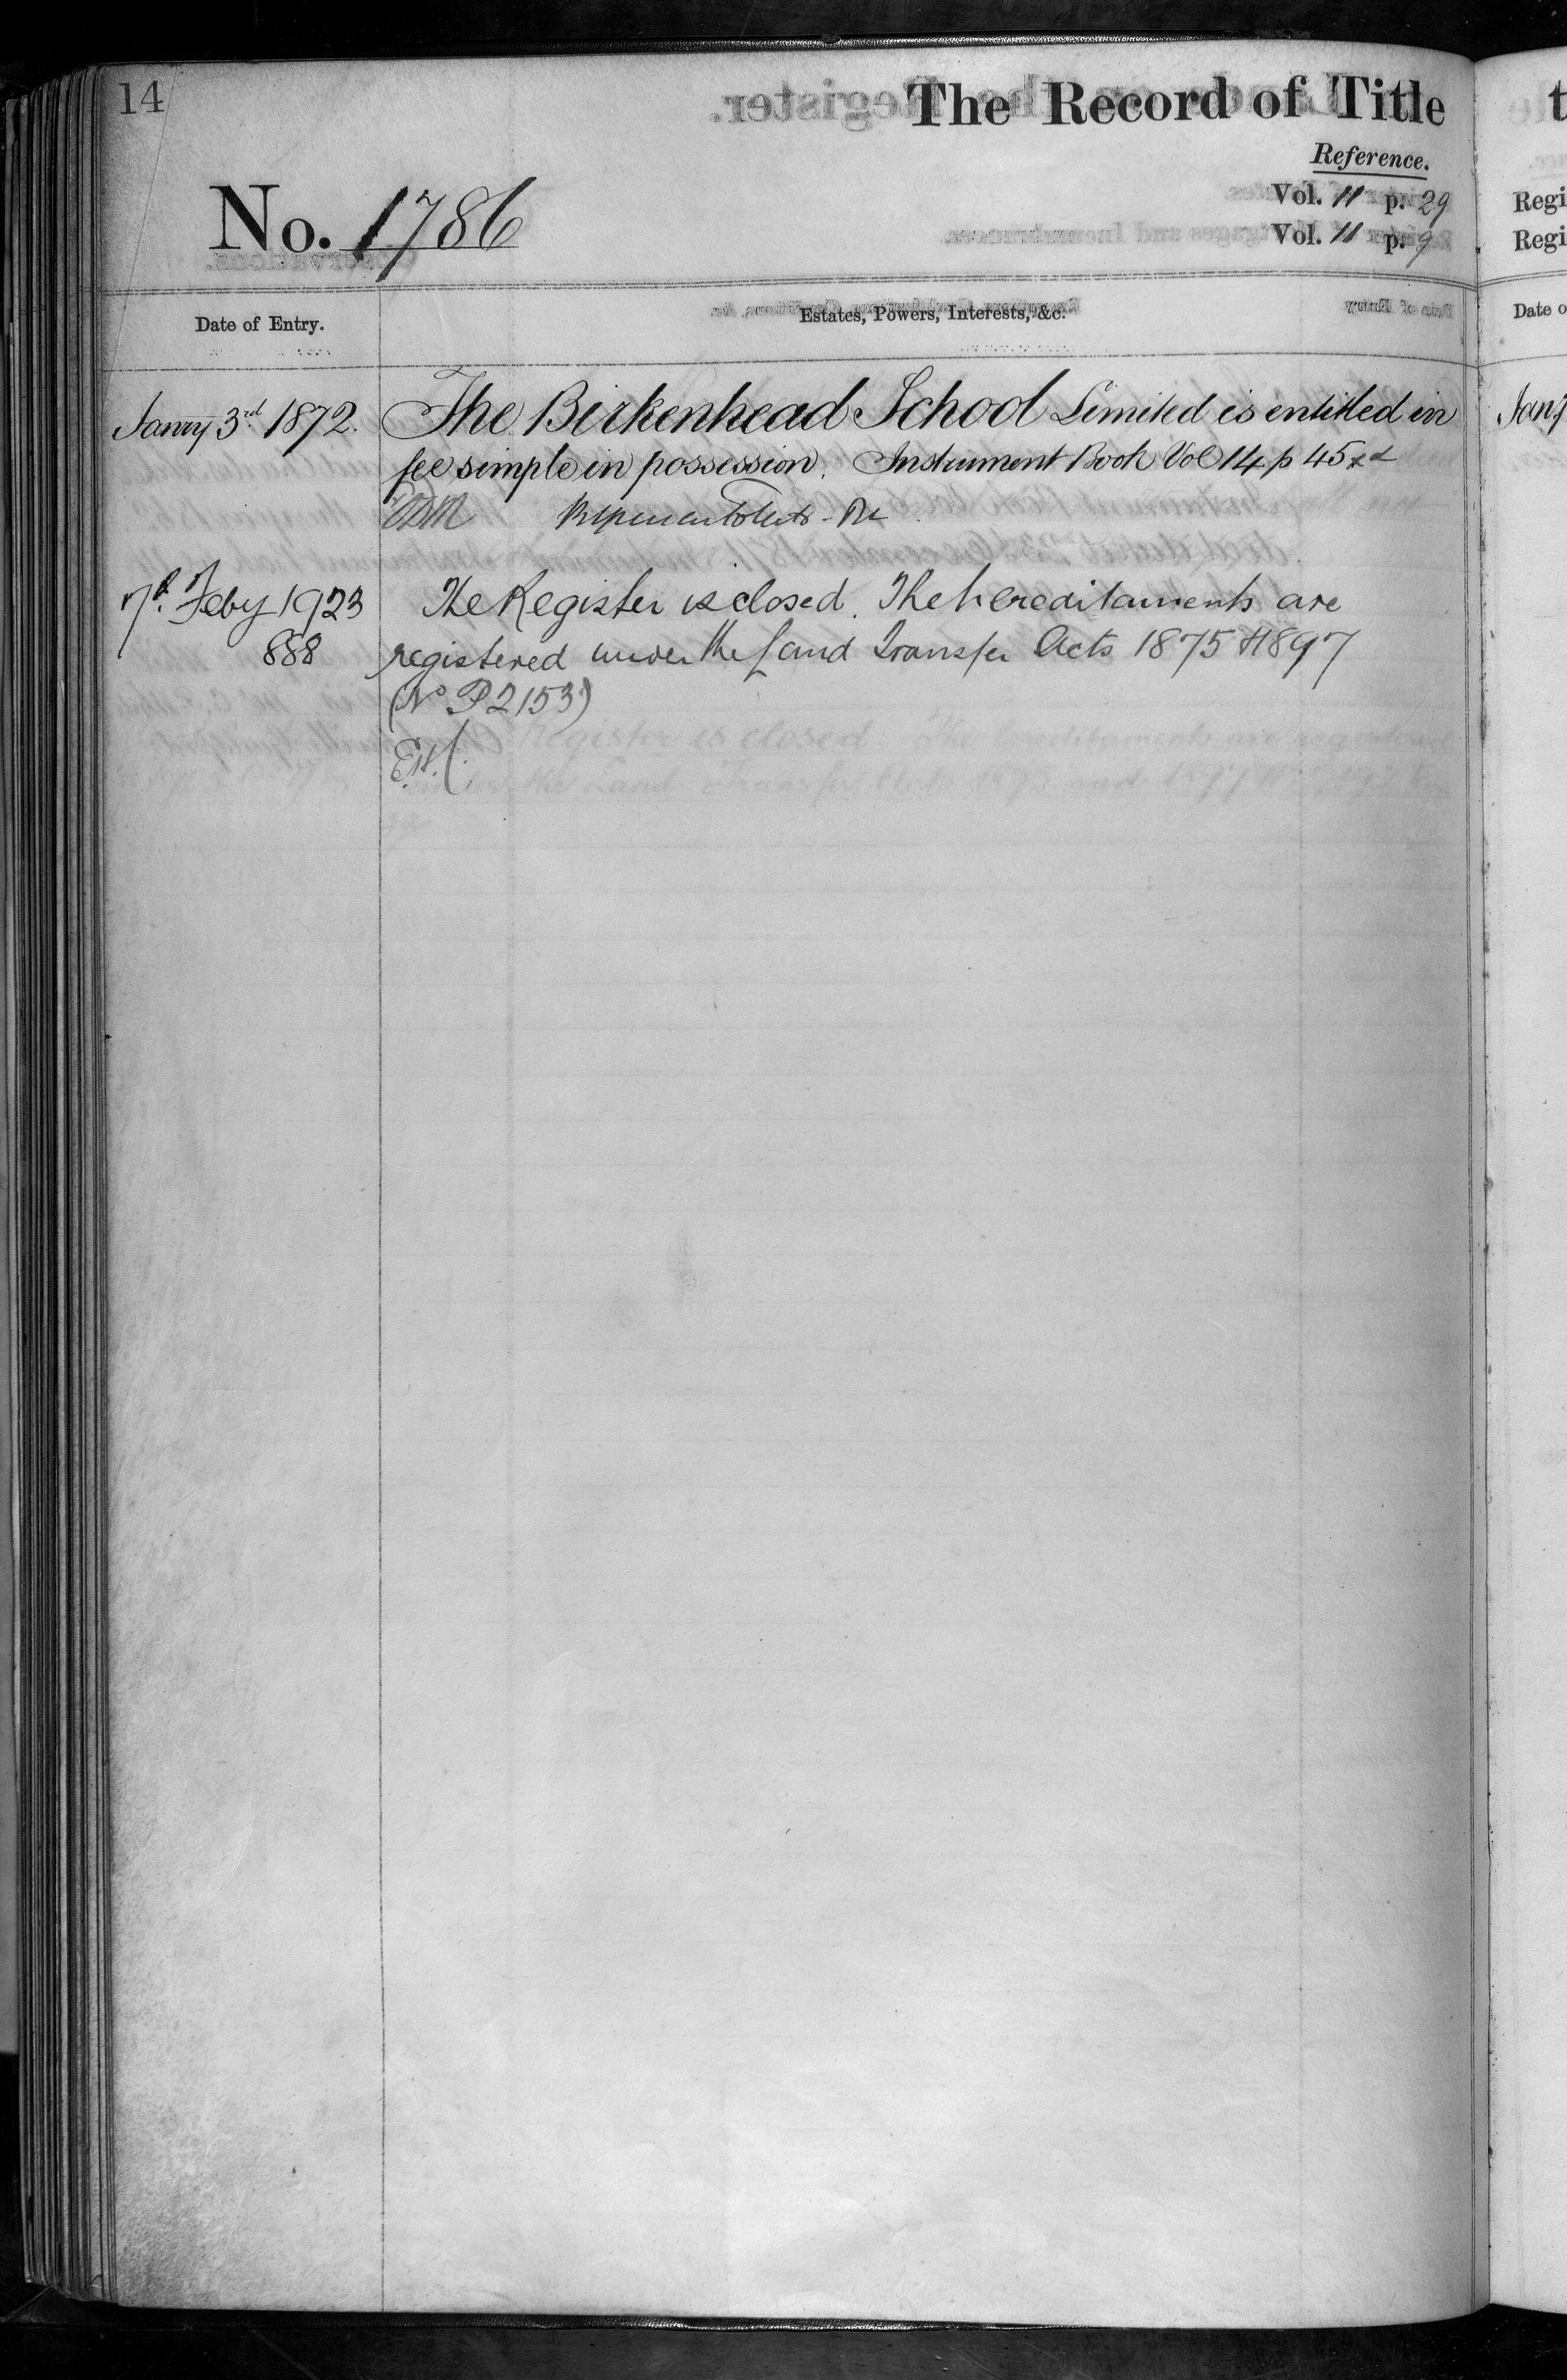 14
The Record of Title
Reference.
No. 1786
Vol. 11 p. 29
Vol. 11 p. 9
Regi
Regi
Date of Entry.
Estates, Powers, Interests, &c.
Date o
Janry 3rd 1872.
The Birkenhead School Limited is entitled in
fee simple in possession. Instrument Book Vol 14 p 45
7th Feby 1923
888
The Register is closed. The hereditaments are
registered under the Land Transfer Acts 1875 & 1897
(No P2153)